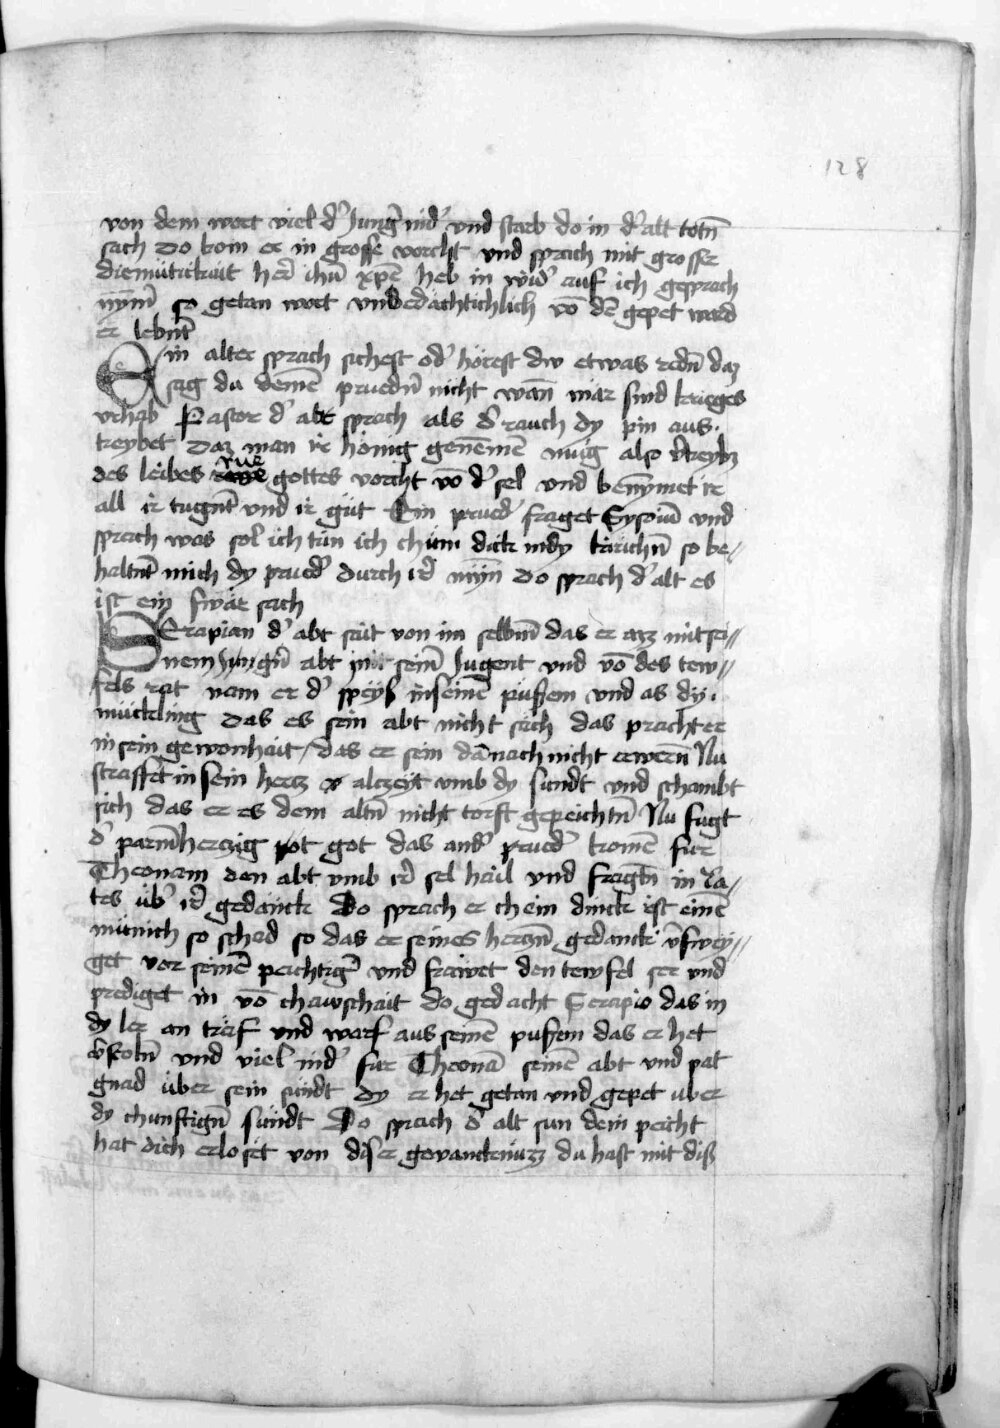 128
von dem wort viel d' Jung' nid' vnd starb do in d' alt totn̄
sach Do kom er in grosse vorcht vnd sprach mit grosser
diemütickait her' ihū xp̄e heb in wid' auf ich gesprach
nym̄' so getan wort vnbedächtichlich vō dē gepet ward
er lebnt'
Ein alter sprach sichest od' hörest dw etwas redn̄ daz
sag du deinē pruedn̄ nicht wan̄ mär sind krieges
vrhab Pastor d' abt sprach als d' rauch dy pin aus
treybet Daz man ir hönig genemē mug also v'treybt
des leibes rue gottes vorcht vō d' sel vnd benymet ir
all ir tugnt vnd ir güt Ein prued' fraget Sysoiū vnd
sprach was sol ich tün ich chum dick in dy kirichn̄ so be//
haltnt mich dy prued' durch ir' mýn Do sprach d' alt es
ist ein swär sach
SErapian d' abt sait von im selbm̄ das er az mit sei//
nem jungn̄ abt in seinˀ Jugent vnd vō des tew//
fels rat nam er d' speys in seinē pusem vnd as dy
mückling das es sein abt nicht sach das prachter
in sein gewonhait / das er sein dānach nicht erwern̄ Nu
straffet in sein hertz alczeyt vmb dy sundt vnd schambt
sich das er es dem altn̄ nicht torst gepeichtn̄ Nu fugt
d' parmhertzig got das and' prued' komen für
Theonam den abt vmb ir' sel hail vnd fragtn̄ in ra//
tes üb' ir' gedänck Do sprach er chein dinck ist einē
münich so schad so das er seines hertzn̄ gedanck v'swey//
get vor seinē peichtig' vnd frawet den tewfel ser vnd
prediget in vō chawschait do gedacht Serapio das in
dy ler an träf vnd warf aus seinē pusem das er het
v'stoln̄ vnd viel nid' für Theonā seinē abt vnd pat
gnad über sein sündt dy er het getan vnd gepet über
dy chunftign̄ sündt Do sprach d' alt sun dein peicht
hat dich erloset von diser gevancknüzz du hast mit diß